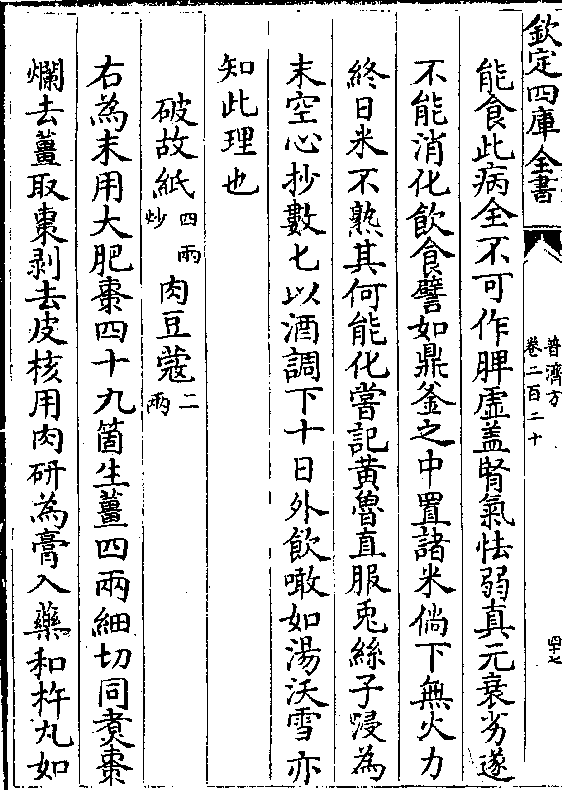 欽定四庫全書
普濟方
卷二百二十
四十七
能食此病全不可作脾虛盖腎氣怯弱真元衰劣遂
不能消化飲食譬如鼎釜之中置諸米倘下無火力
終日米不熟其何能化嘗記黃魯直服兎絲子浸為
末空心抄數匕以酒調下十日外飲噉如湯沃雪亦
知此理也
破故紙四兩炒 肉豆蔻二兩
右為末用大肥棗四十九箇生薑四兩細切同煑棗
爛去薑取棗剥去皮核用肉研為膏入藥和杵丸如